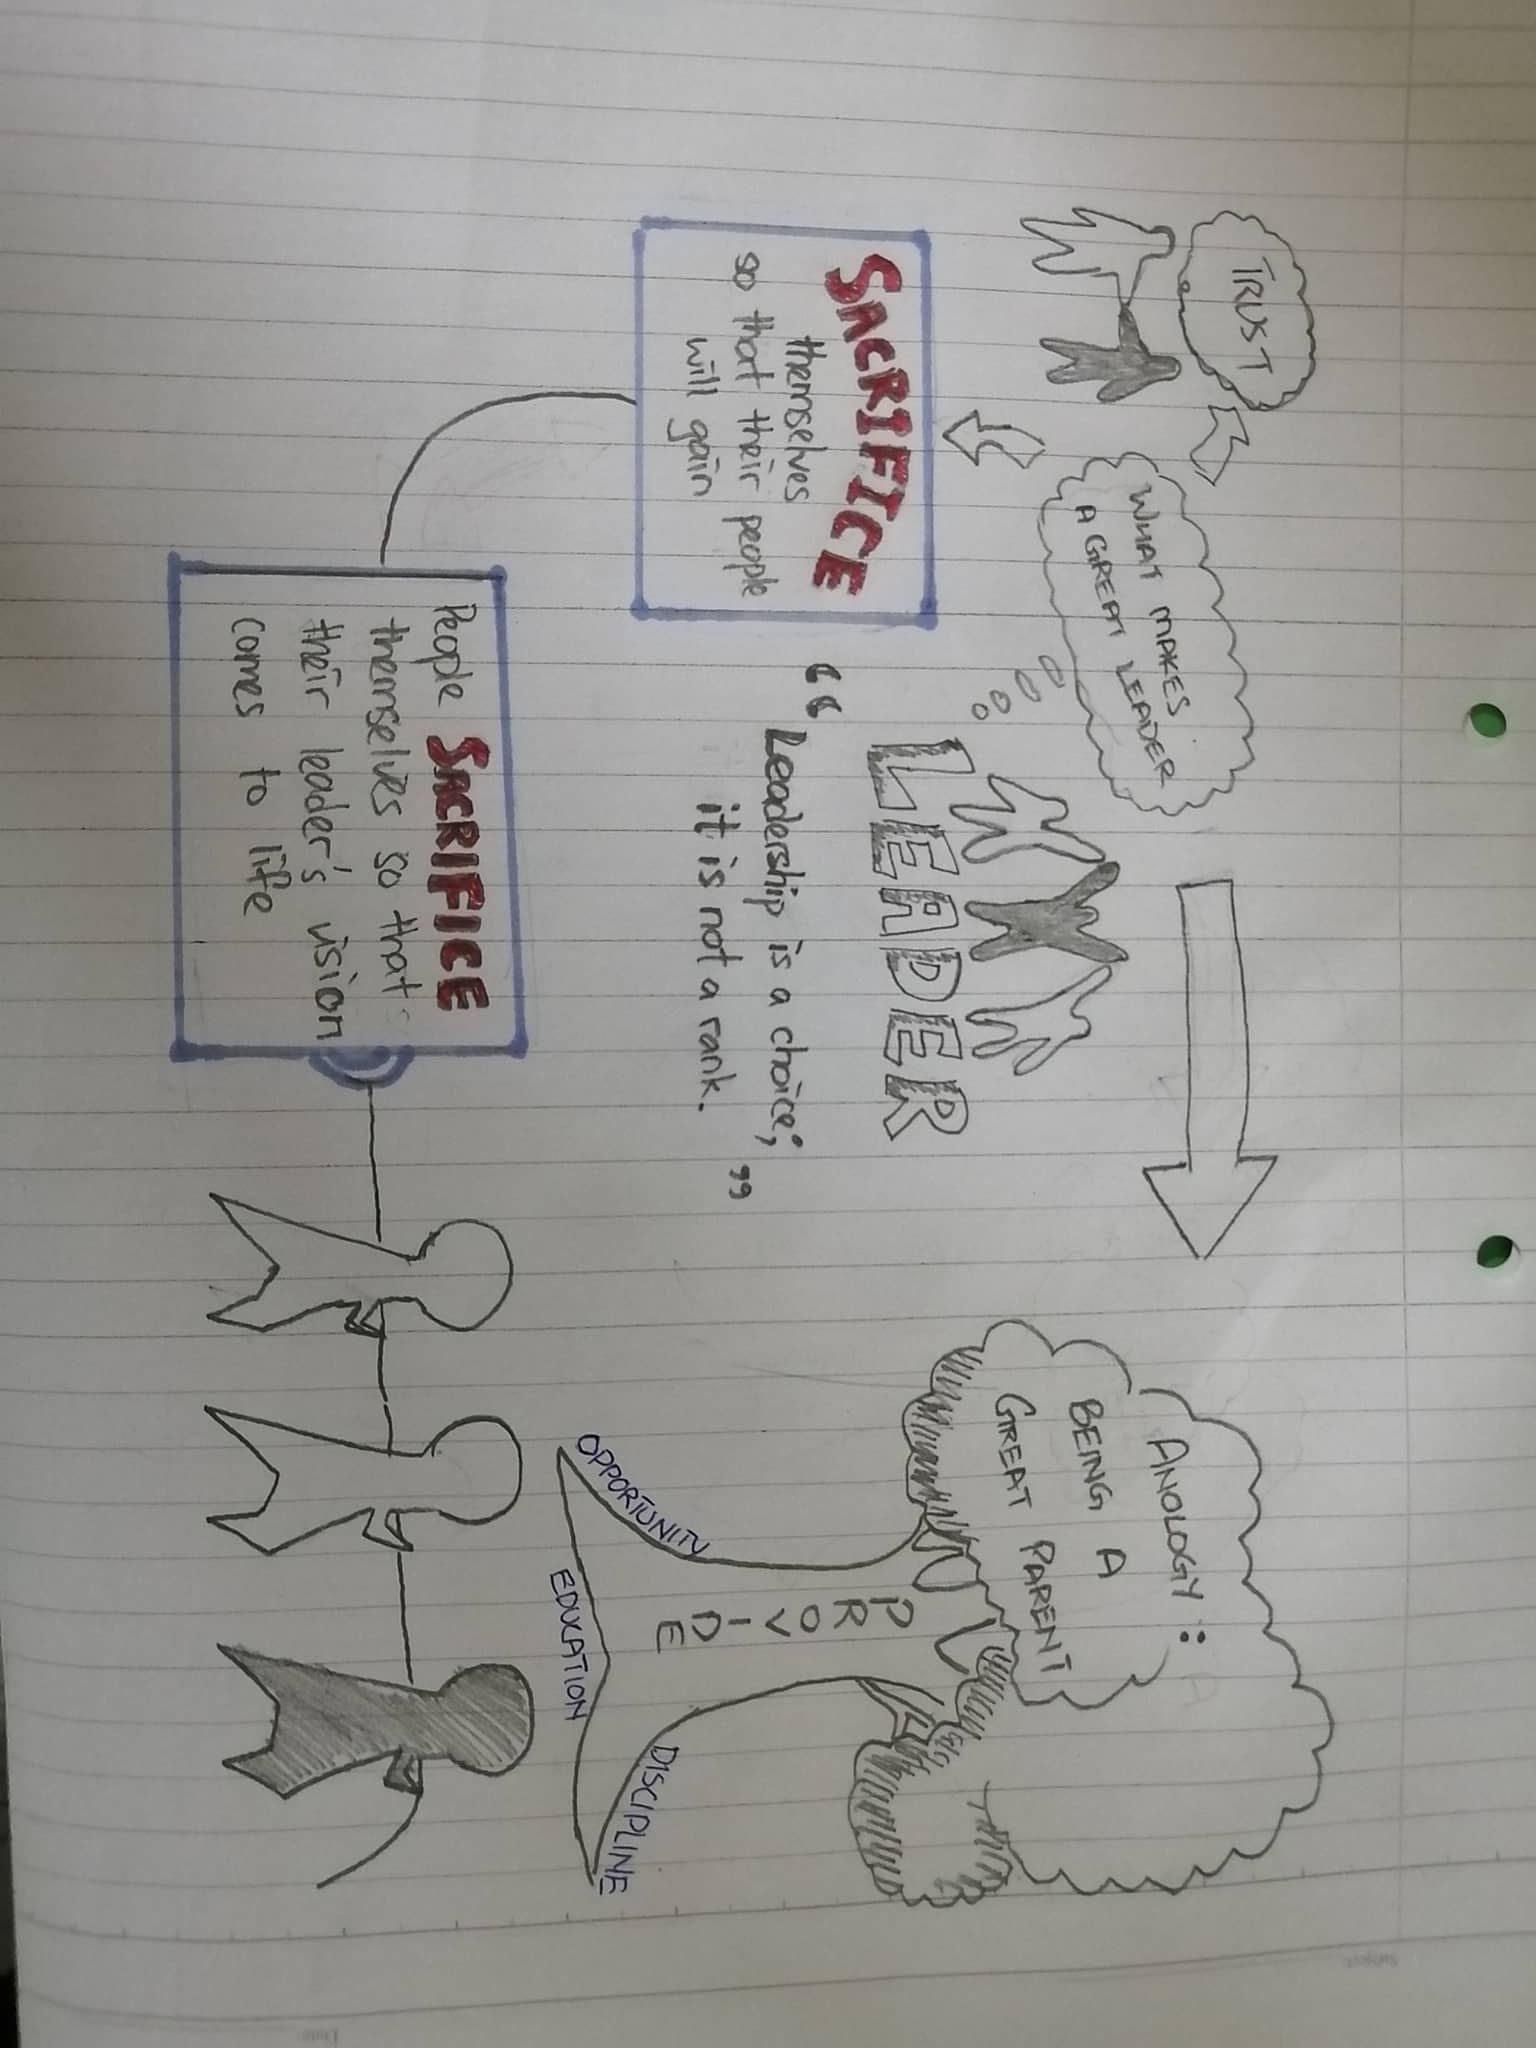 TRUST
WHAT MAKES
A GREAT LEADER
SACRIFICE
themselves
so that their people
will gain
LEADER
“Leadership is a choice;
it is not a rank.”
People SACRIFICE
themselves so that
their leader's vision
comes to life
ANOLOGY:
BEING A
GREAT PARENT
PROVIDE
OPPORTUNITY
EDUCATION
DISCIPLINE
Subject:
Date: